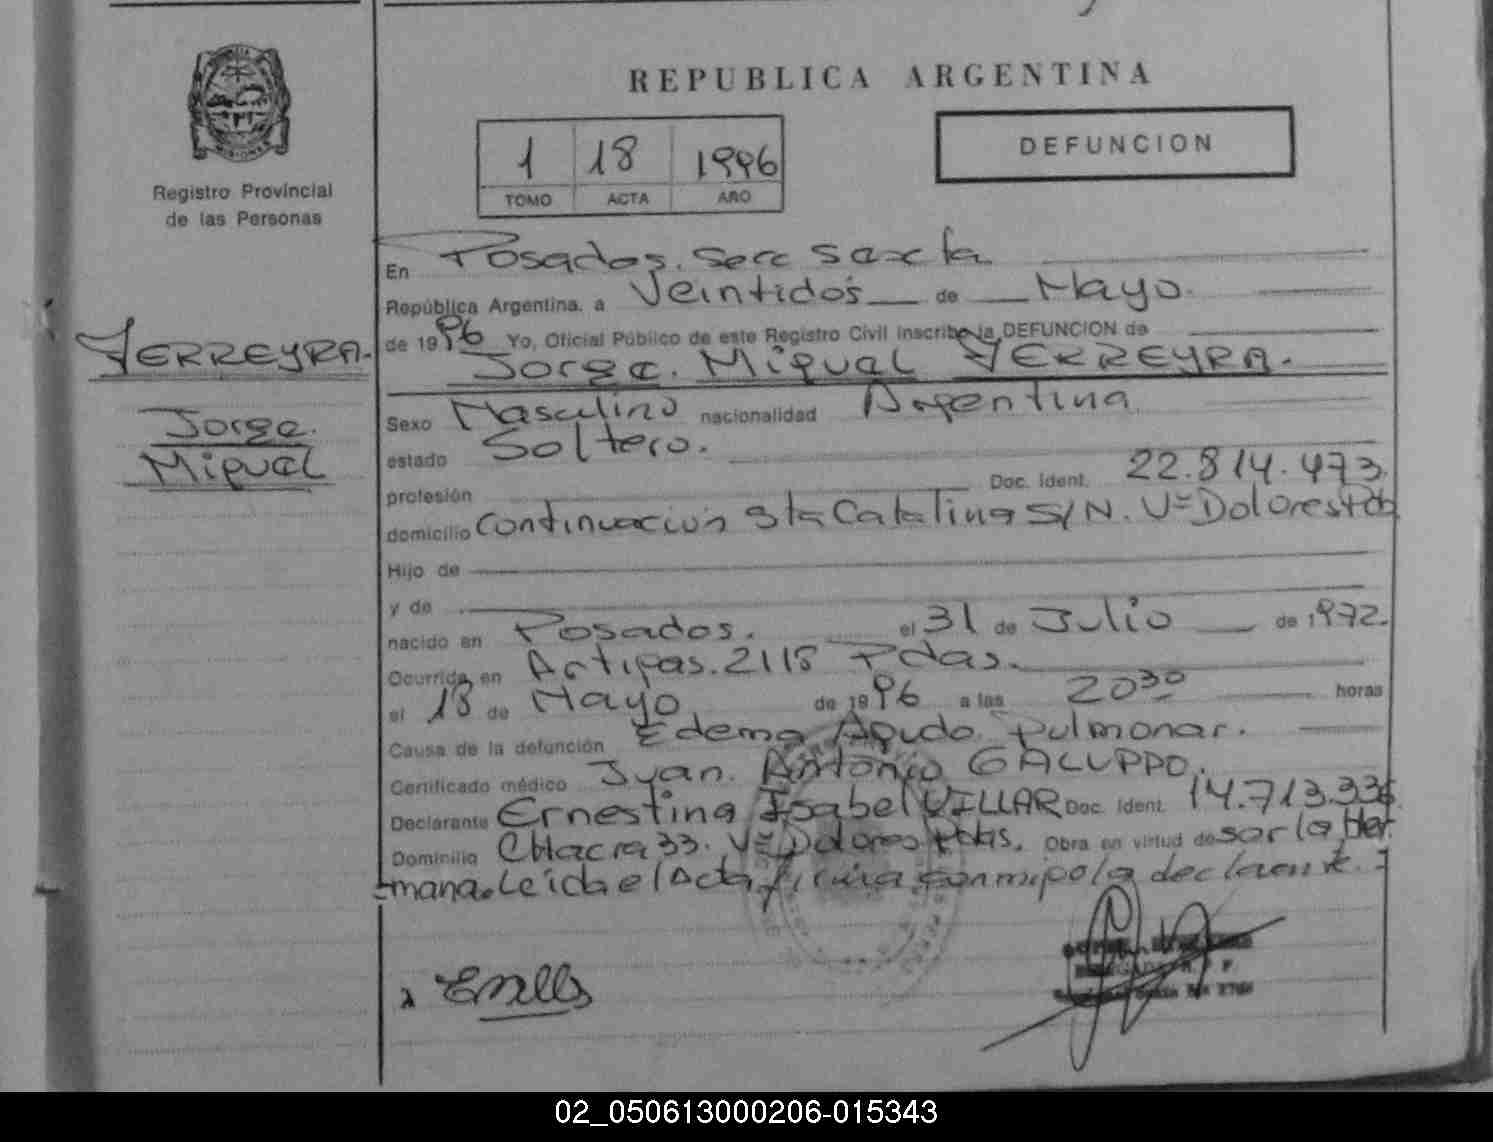 REPUBLICA ARGENTINA
1 18 1996
TOMO ACTA AÑO
DEFUNCION
Registro Provincial
de las Personas
FERREYRA.
Jorge.
Miguel
En Posadas. Secc sexta
República Argentina, a Veintidós de Mayo.
de 1996 Yo, Oficial Público de este Registro Civil inscribo la DEFUNCION de
Jorge. Miguel FERREYRA.
Sexo Masculino nacionalidad Argentina
estado Soltero.
profesión Doc. Ident. 22.814.473
domicilio Continuación Sta Catalina S/N. Vª Dolores Pdas
Hijo de
y de
nacido en Posadas. el 31 de Julio de 1972.
Ocurrida en Artigas. 2118 Pdas.
el 18 de Mayo de 1996 a las 20³⁰ horas
Causa de la defunción Edema Agudo Pulmonar.
Certificado médico Juan. Antonio GALUPPO.
Declarante Ernestina Isabel VILLAR Doc. Ident. 14.713.336
Domicilio Chacra 33. Vª Dolores Pdas. Obra en virtud de sor la Her
mana. Leida el Acta firma conmigo la declarante.
02_050613000206-015343